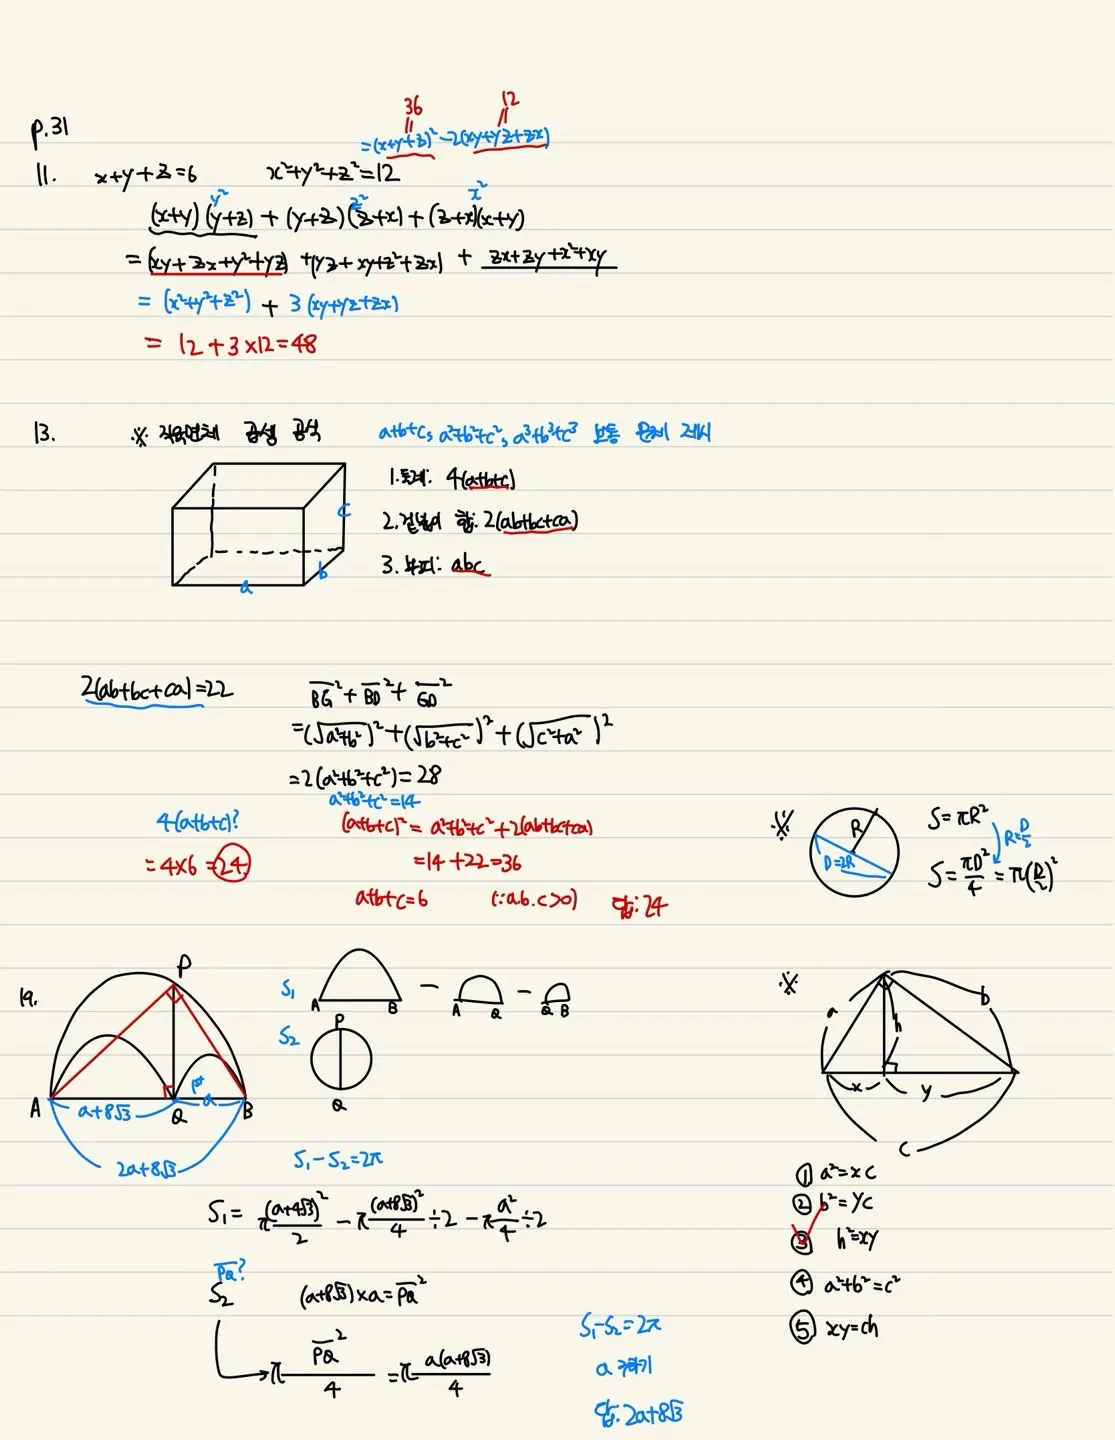 p.31
36
12
=(x+y+z)²-2(xy+yz+zx)
11. x+y+z=6 x²+y²+z²=12
y² z² x²
(x+y)(y+z)+(y+z)(z+x)+(z+x)(x+y)
=(xy+zx+y²+yz)+(yz+xy+z²+zx)+zx+zy+x²+xy
=(x²+y²+z²)+3(xy+yz+zx)
=12+3×12=48
13. ※ 직육면체 곱셈 공식 a+b+c, a²+b²+c², a³+b³+c³ 보통 문제 제시
1. 둘레: 4(a+b+c)
2. 겉넓이 합: 2(ab+bc+ca)
3. 부피: abc
c
b
a
2(ab+bc+ca)=22
BG²+BD²+GD²
=(√a²+b²)²+(√b²+c²)²+(√c²+a²)²
=2(a²+b²+c²)=28
a²+b²+c²=14
4(a+b+c)?
=4×6=24
(a+b+c)²=a²+b²+c²+2(ab+bc+ca)
=14+22=36
a+b+c=6 (∵a.b.c>0) 답: 24
※
R
D=2R
S=πR²
R=D/2
S=πD²/4=π(D/2)²
19.
P
A
Q
B
a+8√3
a
2a+8√3
S₁
A B - A Q - Q B
S₂
P
Q
S₁-S₂=2π
S₁=π(a+4√3)²/2-π(a+8√3)²/4÷2-πa²/4÷2
PQ?
S₂ (a+8√3)×a=PQ²
πPQ²/4=πa(a+8√3)/4
S₁-S₂=2π
a 구하기
답: 2a+8√3
※
a
b
h
x
y
c
① a²=xc
② b²=yc
③ h²=xy
④ a²+b²=c²
⑤ xy=ch